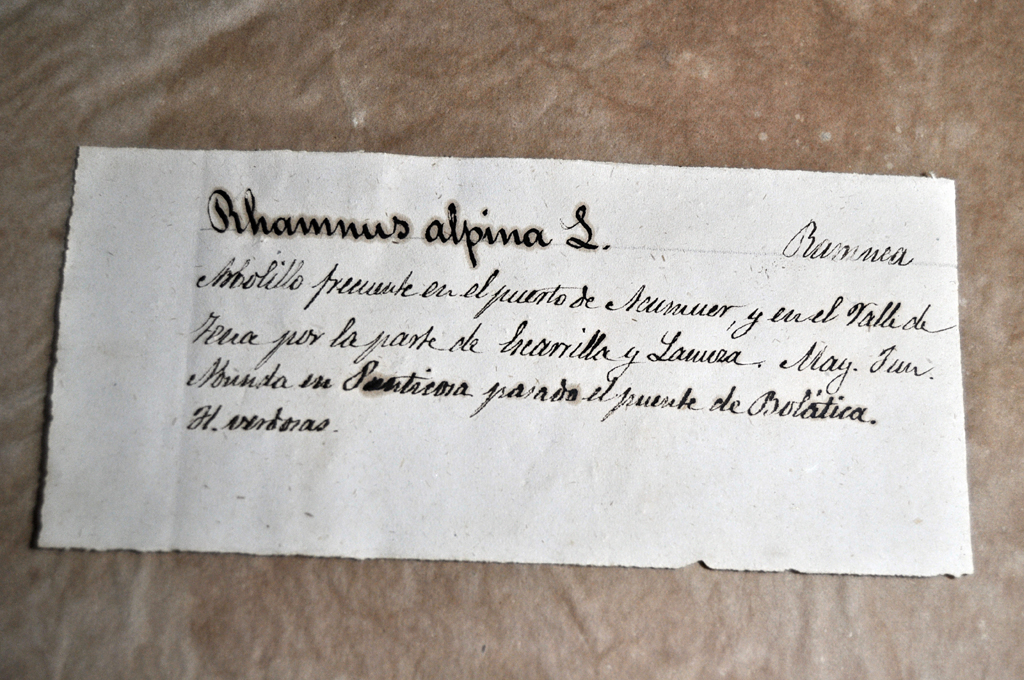 Rhamnus alpina L.
Ramnea
Arbolillo frecuente en el puerto de Acumuer, y en el Valle de
Tena por la parte de Escarrilla y Lanuza. May. Jun.
Abunda en Panticosa pasado el puente de Bolática.
fl. verdosas.